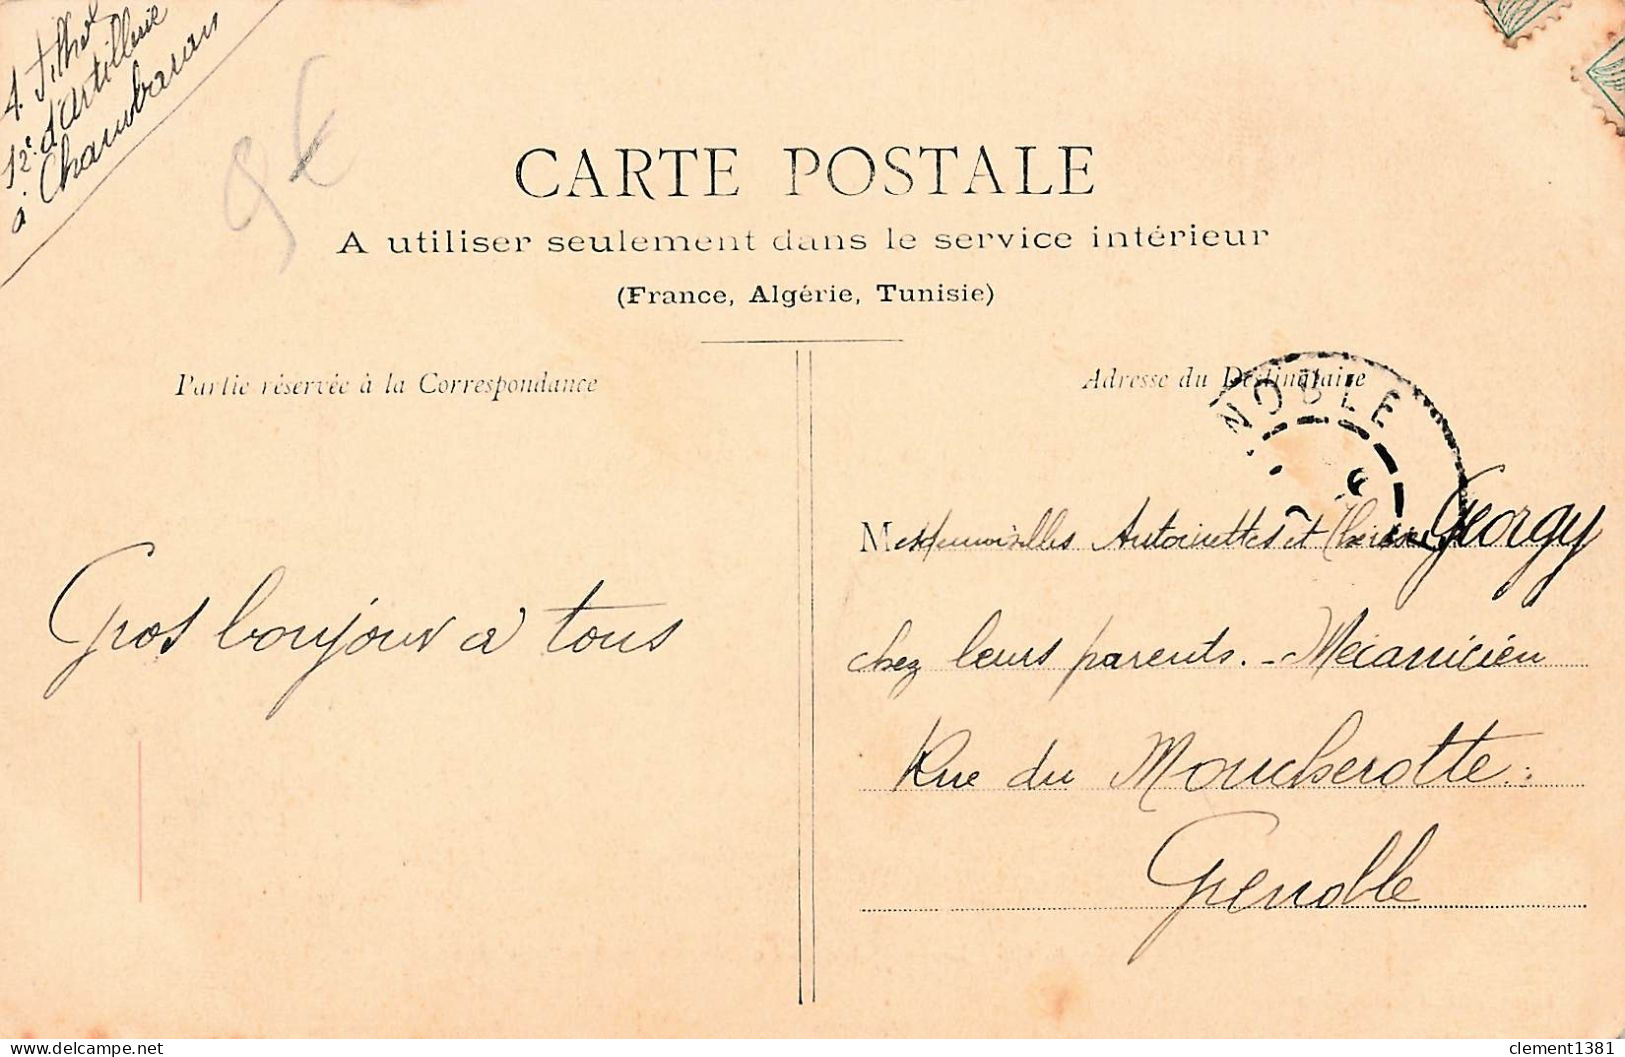 12e d'artillerie
à Chambaran
9€
CARTE POSTALE
A utiliser seulement dans le service intérieur
(France, Algérie, Tunisie)
Partie réservée à la Correspondance
Adresse du Destinataire
NOBLE
Mesdemoiselles Antoinettes et Thérèse Georgy
chez leurs parents. - Mécanicien
Rue du Moucherotte
Grenoble
Gros bonjour à tous
clement1381